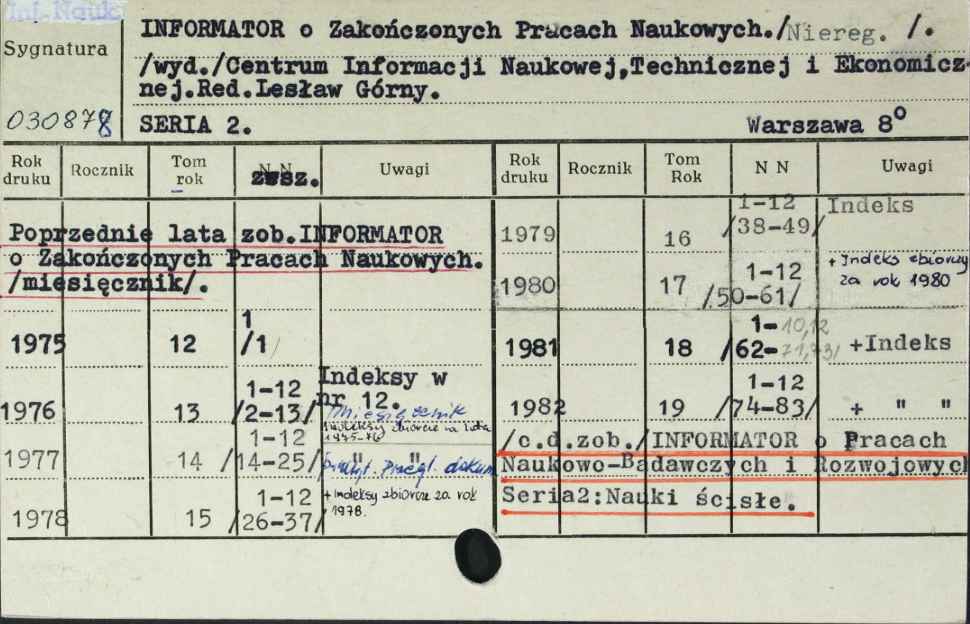 Inf. Nauk
Sygnatura
030878
INFORMATOR o Zakończonych Pracach Naukowych./Niereg. /.
/wyd./Centrum Informacji Naukowej,Technicznej i Ekonomicz-
nej.Red.Lesław Górny.
SERIA 2. Warszawa 8º
Rok druku Rocznik Tom rok N N zesz. Uwagi
Poprzednie lata zob.INFORMATOR
o Zakończonych Pracach Naukowych.
/miesięcznik/.
1975 12 1 /1/
1976 13 1-12 /2-13/ Indeksy w nr 12.
miesięcznik
Indeksy zbiorcze za lata 1975-76
1977 14 1-12 /14-25/ " "
Przegl. dokum
1978 15 1-12 /26-37/ + Indeksy zbiorcze za rok 1978.
Rok druku Rocznik Tom Rok N N Uwagi
1979 16 1-12 /38-49/ Indeks
1980 17 1-12 /50-61/ + Indeks zbiorczy za rok 1980
1981 18 1-10,12 /62-71,73/ +Indeks
1982 19 1-12 /74-83/ + " "
/c.d.zob./INFORMATOR o Pracach
Naukowo-Badawczych i Rozwojowych
Seria2:Nauki ścisłe.